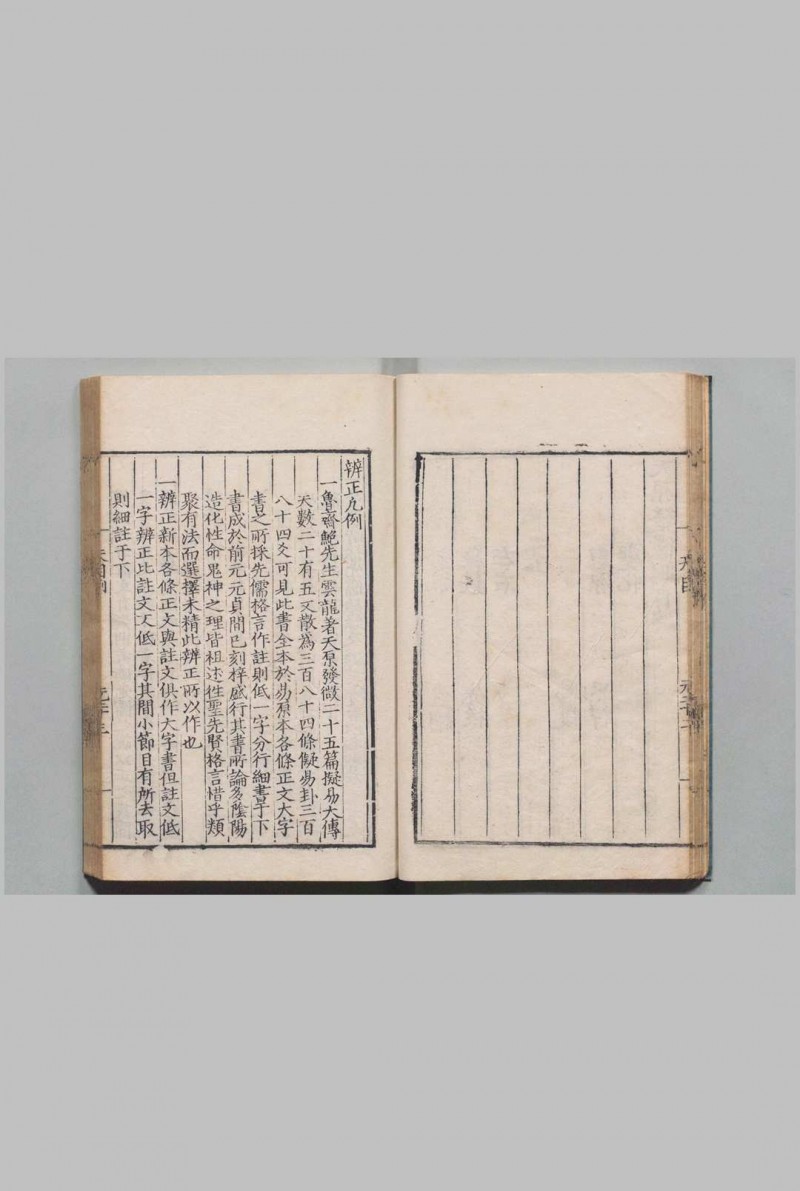 辨正凡例
一魯齋鮑先生雲龍著天原發微二十五篇擬易大傳
天數二十有五又散為三百八十四條儗易卦三百
八十四爻可見此書全本於易原本各條正文大字
書之所採先儒格言作註則低一字分行細書于下
書成於前元元貞間已刻梓盛行其書所論多陰陽
造化性命鬼神之理皆祖述徃聖先賢格言惜乎類
聚有法而選擇未精此辨正所以作也
一辨正新本各條正文與註文俱作大字書但註文低
一字辨正比註文又低一字其間小節目有所去取
則細註于下